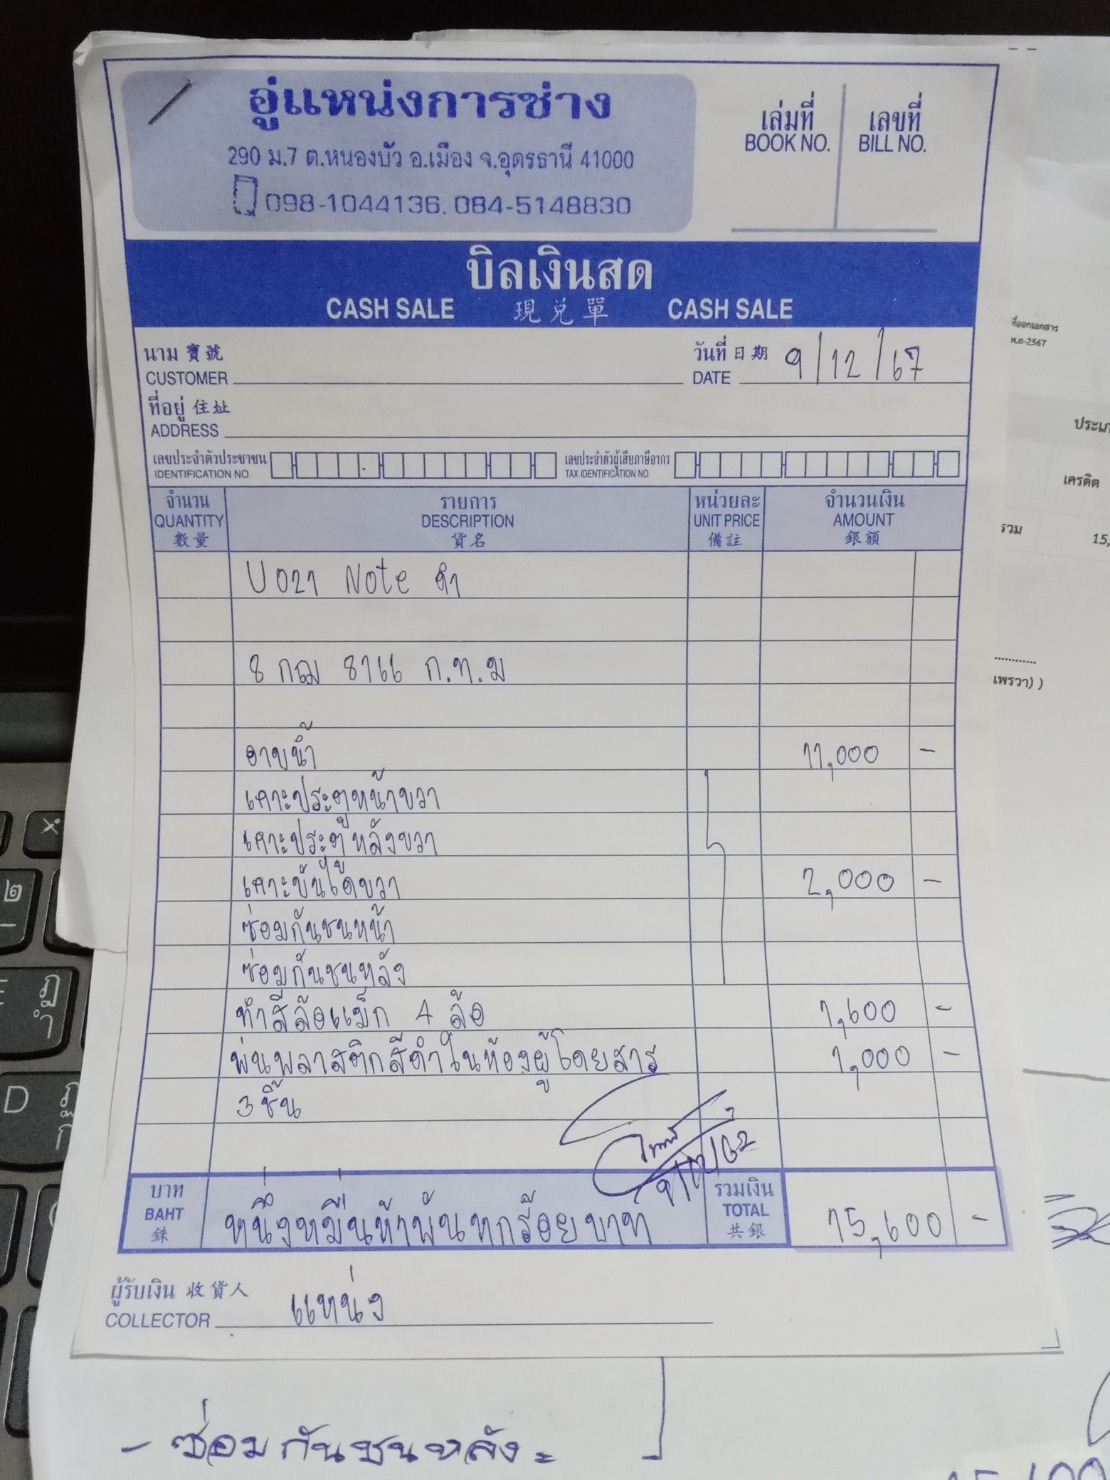 อู่แหน่งการช่าง
290 ม.7 ต.หนองบัว อ.เมือง จ.อุดรธานี 41000
098-1044136, 084-5148830
เล่มที่ เลขที่
BOOK NO. BILL NO.
บิลเงินสด
CASH SALE 現兌單 CASH SALE
นาม 寶號 วันที่ 日期 9/12/67
CUSTOMER DATE
ที่อยู่ 住址
ADDRESS
เลขประจำตัวประชาชน เลขประจำตัวผู้เสียภาษีอากร
IDENTIFICATION NO. TAX IDENTIFICATION NO.
จำนวน รายการ หน่วยละ จำนวนเงิน
QUANTITY DESCRIPTION UNIT PRICE AMOUNT
數量 貨名 備註 銀額
U021 Note ดำ
8 กฌ 8166 ก.ท.ม
อาบน้ำ 11,000 -
เคาะประตูหน้าขวา
เคาะประตูหลังขวา
เคาะบันไดขวา 2,000 -
ซ่อมกันชนหน้า
ซ่อมกันชนหลัง
ทำสีล้อแม็ก 4 ล้อ 1,600 -
พ่นพลาสติกสีดำในห้องผู้โดยสาร 1,000 -
3 ชิ้น
บาท หนึ่งหมื่นห้าพันหกร้อยบาท รวมเงิน 15,600 -
BAHT TOTAL
銖 共銀
ผู้รับเงิน 收貨人 แหน่ง
COLLECTOR
- ซ่อมกันชนหลัง
ที่ออกเอกสาร
พ.ย-2567
เครดิต
รวม 15,
เพรวา) )